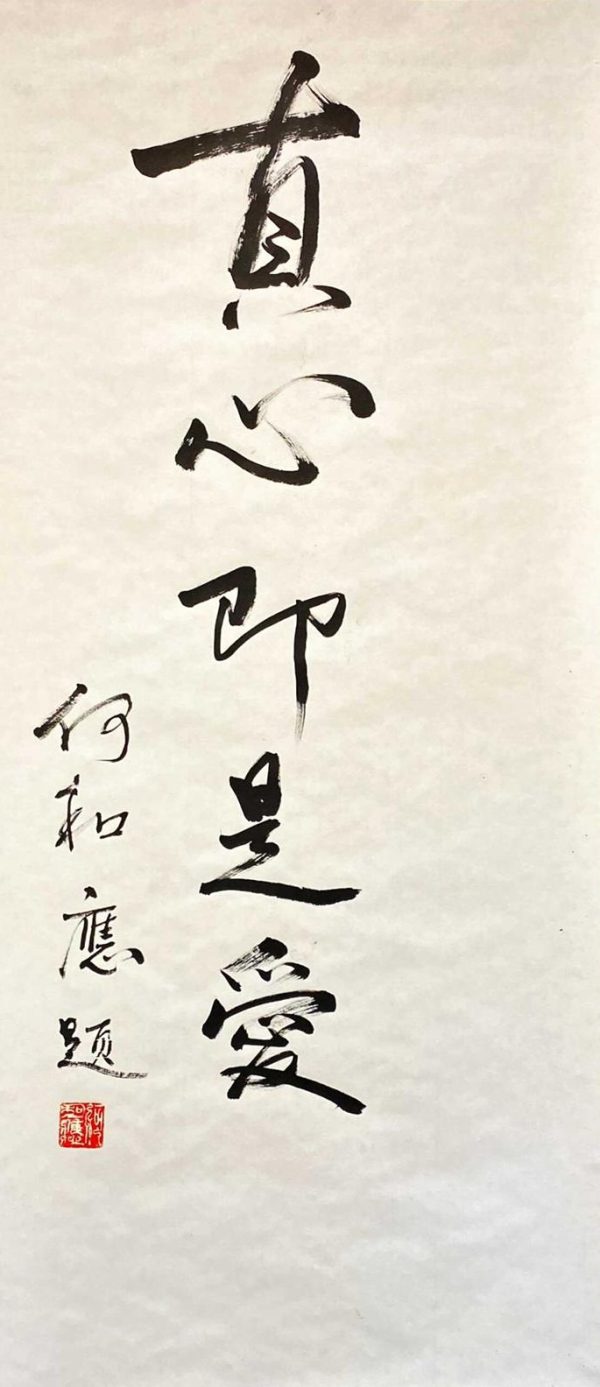 真心即是愛
何和應題